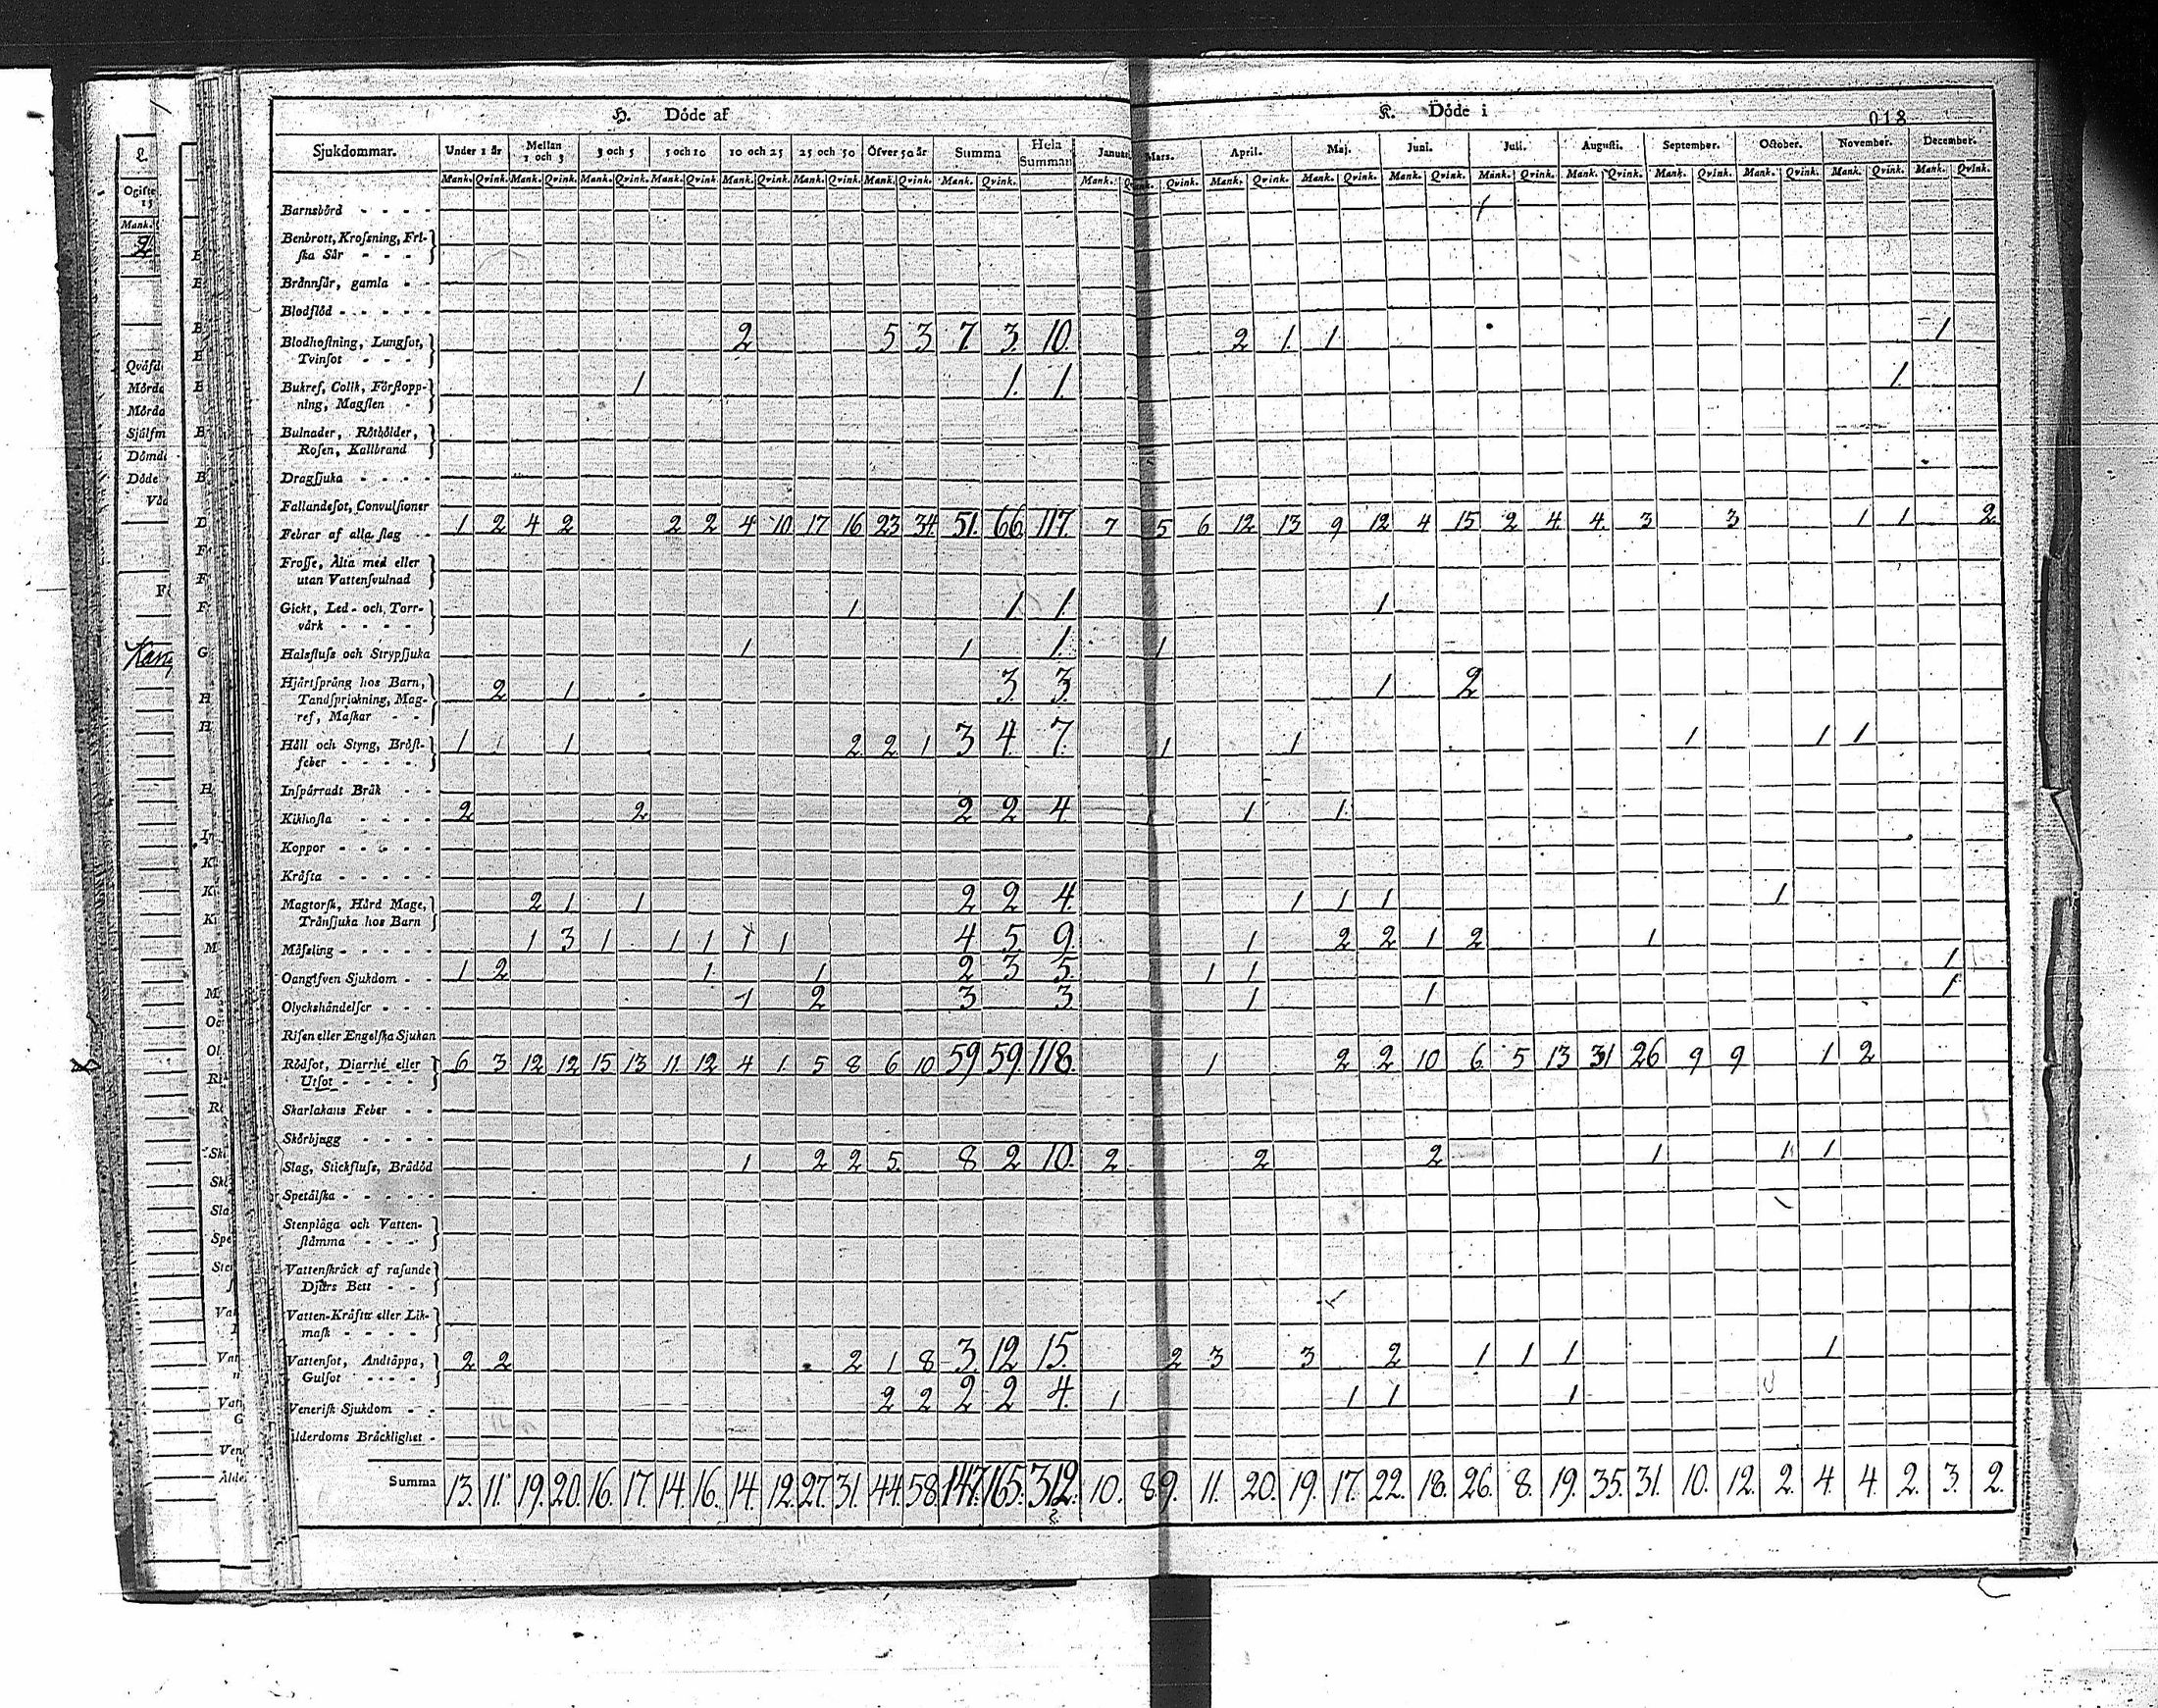 018
H. Döde af
K. Döde i
Sjukdommar. Under 1 år Mellan 1 och 3 3 och 5 5 och 10 10 och 25 25 och 50 Öfver 50 år Summa Hela Summan Januari Mars. April. Maj. Juni. Juli. Augusti. September. October. November. December.
Mank. Qvink. Mank. Qvink. Mank. Qvink. Mank. Qvink. Mank. Qvink. Mank. Qvink. Mank. Qvink. Mank. Qvink. Mank. Qvink. Mank. Qvink. Mank. Qvink. Mank. Qvink. Mank. Qvink. Mank. Qvink. Mank. Qvink. Mank. Qvink. Mank. Qvink. Mank. Qvink. Mank. Qvink.
Barnsbörd 1
Benbrott, Krosning, Fri-
ska Sår
Brännsår, gamla
Blodflöd
Blodhostning, Lungsot, 2 5 3 7 3 10 2 1 1 1
Tvinsot
Bukref, Colik, Förstopp- 1 1 1 1
ning, Magslen
Bulnader, Rötbölder,
Rosen, Kallbrand
Dragsjuka
Fallandesot, Convulsioner
Febrar af alla slag 1 2 4 2 2 2 4 10 17 16 23 34 51 66 117 7 5 6 12 13 9 12 4 15 2 4 4 3 3 1 1 2
Frosse, Älta med eller
utan Vattensvulnad
Gickt, Led- och Torr- 1 1 1 1
värk
Halsfluss och Strypsjuka 1 1 1 1
Hjärtsprång hos Barn, 2 1 3 3 1 2
Tandsprickning, Mag-
ref, Maskar
Håll och Styng, Bröst- 1 1 1 2 2 1 3 4 7 1 1 1 1 1
feber
Inspärradt Bråk
Kikhosta 2 2 2 2 4 1 1
Koppor
Kräfta
Magtorsk, Hård Mage, 2 1 1 2 2 4 1 1 1 1
Trånsjuka hos Barn
Mässling 1 3 1 1 1 1 1 4 5 9 1 2 2 1 2 1
Oangifven Sjukdom 1 2 1 1 2 3 5 1 1 1
Olyckshändelser 1 2 3 3 1 1 1
Risen eller Engelska Sjukan
Rödsot, Diarrhé eller 6 3 12 12 15 13 11 12 4 1 5 8 6 10 59 59 118 1 2 2 10 6 5 13 31 26 9 9 1 2
Utsot
Skarlakans Feber
Skörbjugg
Slag, Stickfluss, Brådöd 1 2 2 5 8 2 10 2 2 2 1 1 1
Spetälska
Stenplåga och Vatten-
stämma
Vattenskräck af rasande
Djurs Bett
Vatten-Kräfta eller Lik-
mask
Vattensot, Andtäppa, 2 2 2 1 8 3 12 15 2 3 3 2 1 1 1 1
Gulsot
Venerisk Sjukdom 2 2 2 2 4 1 1 1 1
Ålderdoms Bräcklighet
Summa 13. 11. 19. 20. 16. 17. 14. 16. 14. 12. 27. 31. 44. 58. 147. 165. 312. 10. 8 9. 11. 20. 19. 17. 22. 18. 26. 8. 19. 35. 31. 10. 12. 2. 4. 4. 2. 3. 2.